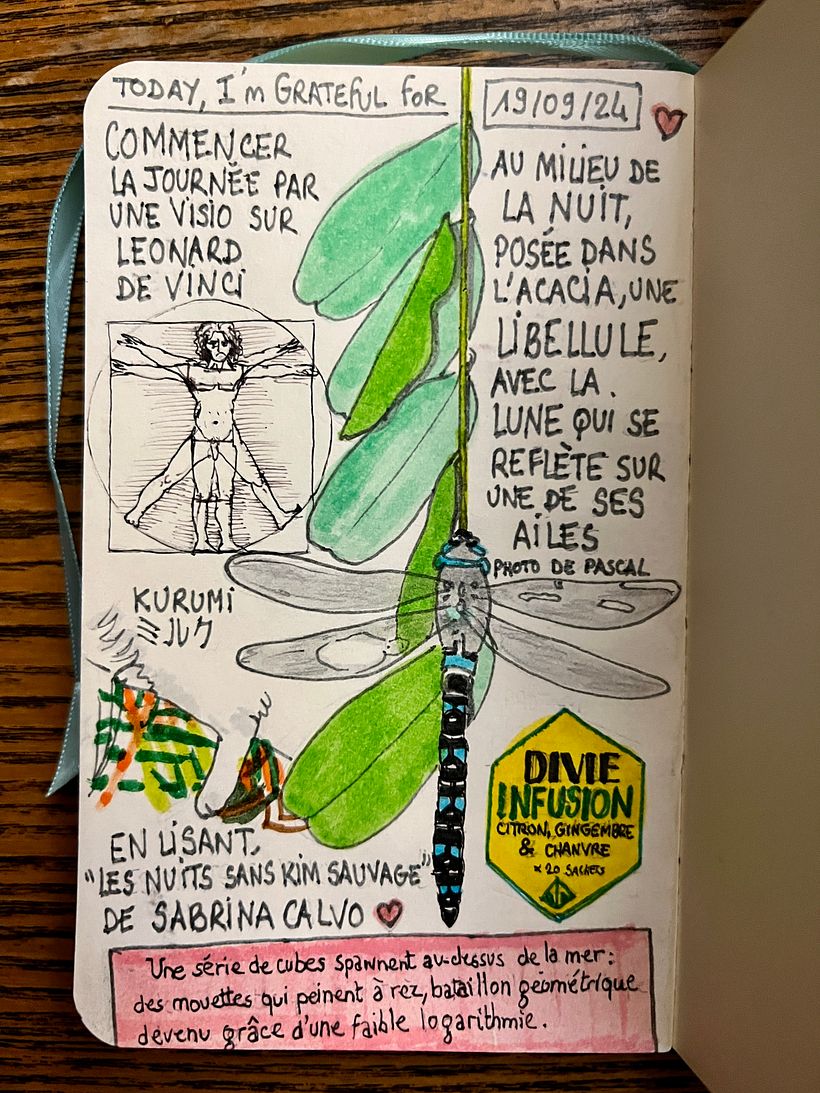 TODAY, I'm GRATEFUL FOR
19/09/24
COMMENCER
LA JOURNÉE PAR
UNE VISIO SUR
LEONARD
DE VINCI
AU MILIEU DE
LA NUIT,
POSÉE DANS
L'ACACIA, UNE
LIBELLULE,
AVEC LA
LUNE QUI SE
REFLÈTE SUR
UNE DE SES
AILES
PHOTO DE PASCAL
KURUMI
ミルク
DIVIE
INFUSION
CITRON, GINGEMBRE
& CHANVRE
x 20 SACHETS
EN LISANT,
"LES NUITS SANS KIM SAUVAGE"
DE SABRINA CALVO
Une série de cubes spawnent au-dessus de la mer:
des mouettes qui peinent à rez, bataillon géométrique
devenu grâce d'une faible logarithmie.